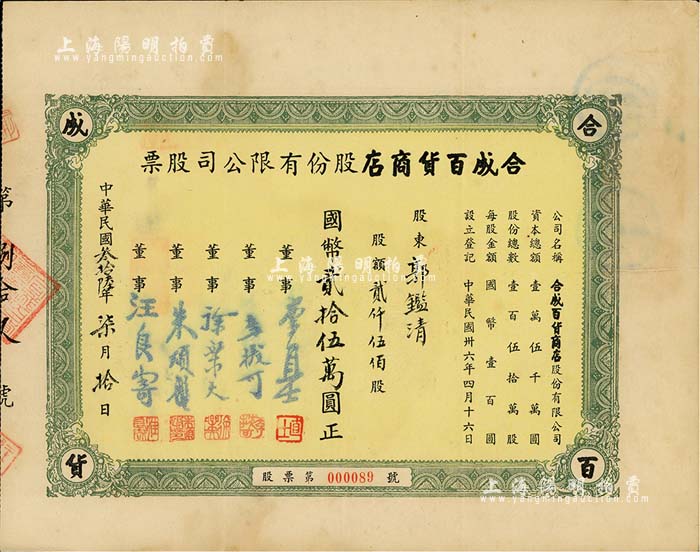 上海陽明拍賣
www.yangmingauction.com
合成百貨
合成百貨商店股份有限公司股票
公司名稱 合成百貨商店股份有限公司
資本總額 壹萬伍千萬圓
股份總數 壹百伍拾萬股
每股金額 國幣壹百圓
設立登記 中華民國卅六年四月十六日
股東 郭鑑清
股額貳仟伍佰股
國幣貳拾伍萬圓正
董事
董事
董事 徐榮大
董事 朱頌
董事 汪良寄
中華民國叁拾陸年柒月拾日
股票第 000089 號
第捌拾玖號
上海陽明拍賣
www.yangmingauction.com